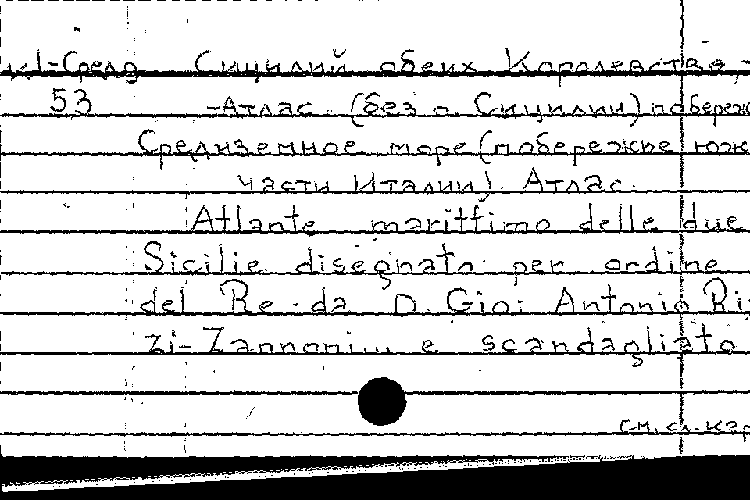 -Сред Сицилий обеих Королевства,-
53 -Атлас. (без о. Сицилии) побереж
Средиземное море (побережье юж
части Италии). Атлас.
Atlante marittimo delle due
Sicilie disegnato per ordine
del Re da D. Gio: Antonio Riz
zi-Zannoni... e scandagliato
см. сл. кар